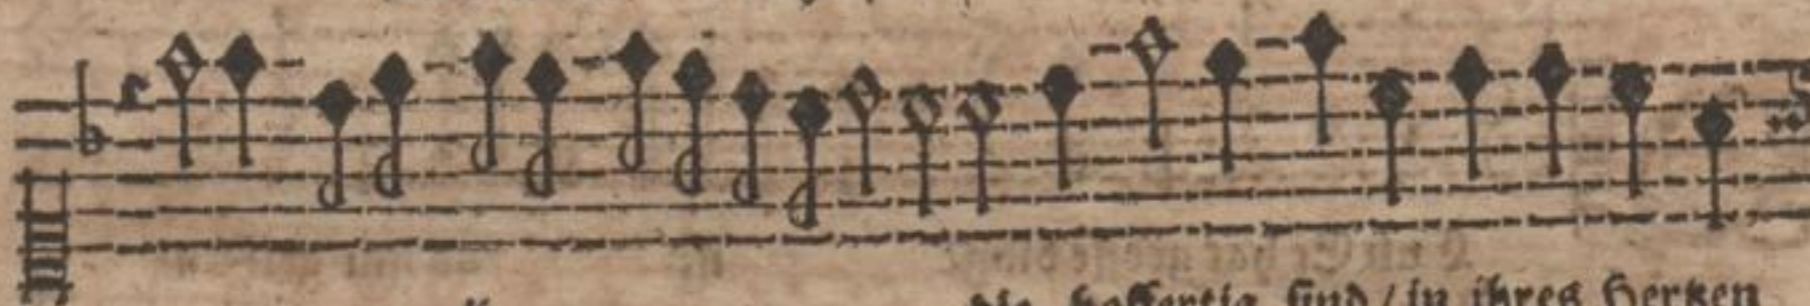 die hoffertig sind / in ihres Hertzen